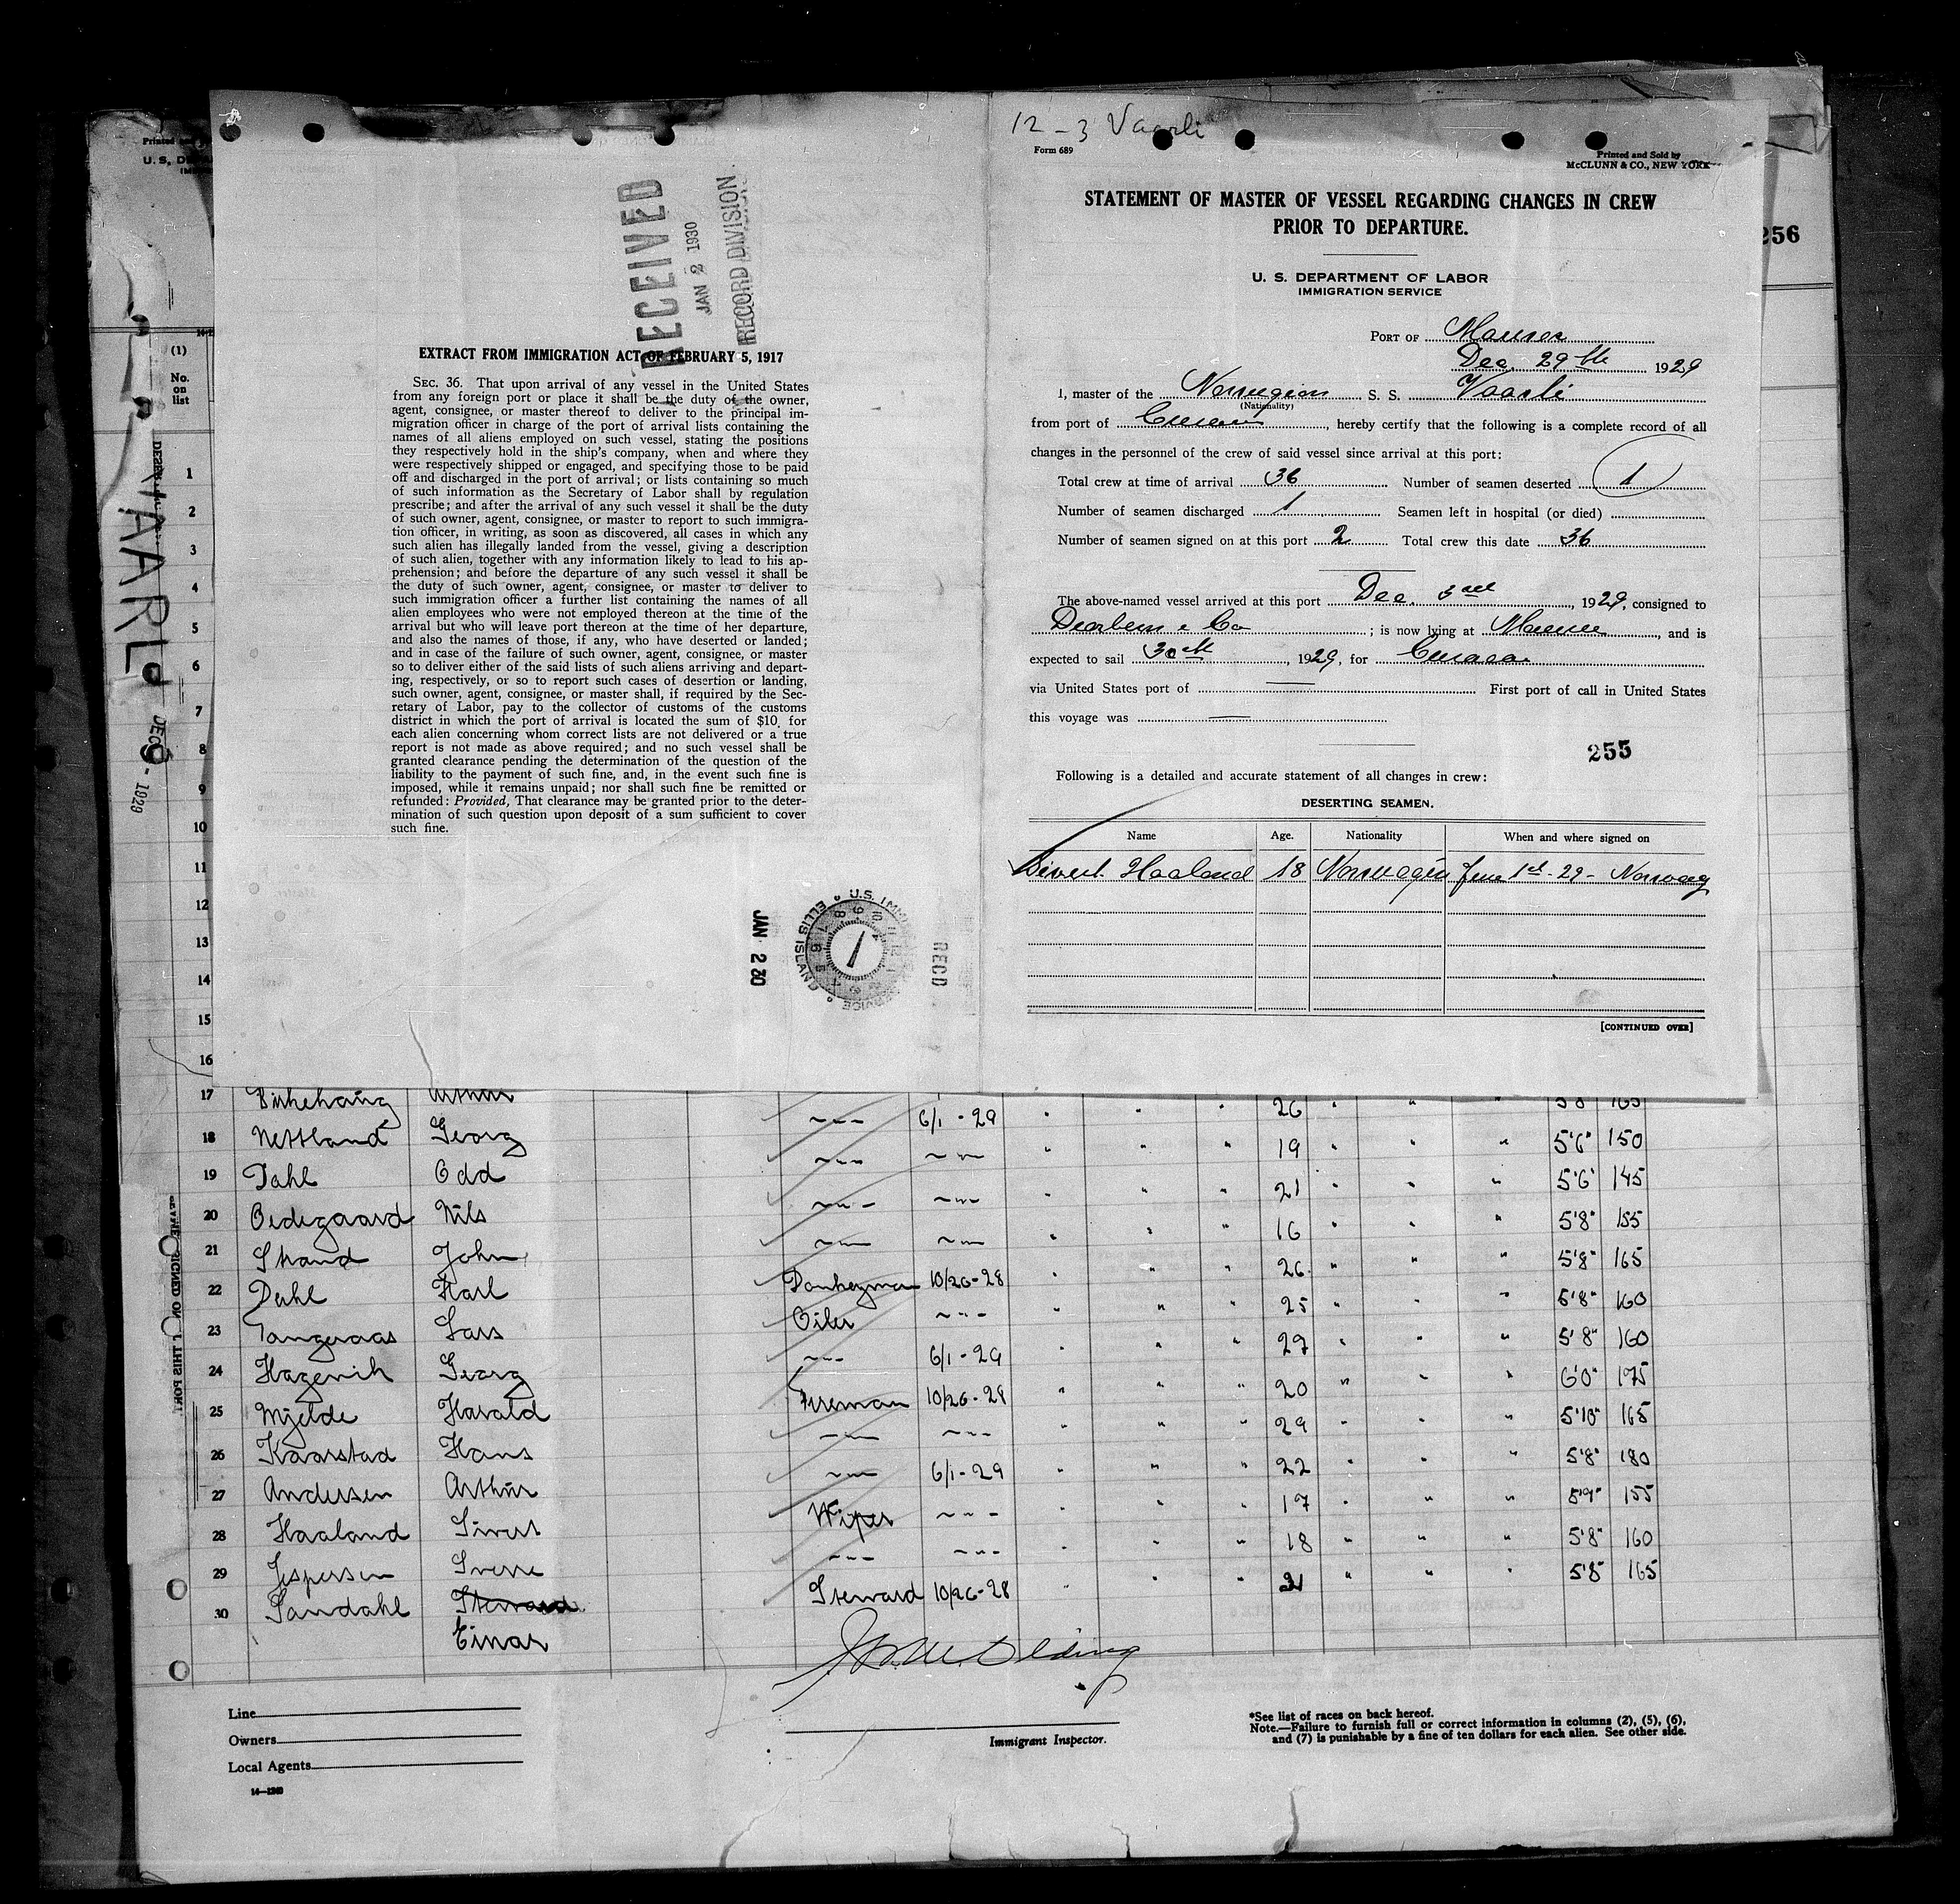 12 - 3 Vaarli
Form 689
Printed and Sold by
McCLUNN & CO., NEW YORK
STATEMENT OF MASTER OF VESSEL REGARDING CHANGES IN CREW
PRIOR TO DEPARTURE.
U. S. DEPARTMENT OF LABOR
IMMIGRATION SERVICE
PORT OF
Dec. 29th 1929
I, master of the Norwegian S. S. Vaarli
(Nationality)
from port of Curacao, hereby certify that the following is a complete record of all
changes in the personnel of the crew of said vessel since arrival at this port:
Total crew at time of arrival 36 Number of seamen deserted 1
Number of seamen discharged 1 Seamen left in hospital (or died)
Number of seamen signed on at this port 2 Total crew this date 36
The above-named vessel arrived at this port Dec. 3rd, 1929, consigned to
& Co; is now lying at , and is
expected to sail 30th, 1929, for Curacao
via United States port of — First port of call in United States
this voyage was —
255
Following is a detailed and accurate statement of all changes in crew:
DESERTING SEAMEN.
Name Age. Nationality When and where signed on
Sivert Haaland 18 Norwegian June 1st - 29 - Norway
[CONTINUED OVER]
RECEIVED
JAN 2 1930
RECORD DIVISION
EXTRACT FROM IMMIGRATION ACT OF FEBRUARY 5, 1917
SEC. 36. That upon arrival of any vessel in the United States
from any foreign port or place it shall be the duty of the owner,
agent, consignee, or master thereof to deliver to the principal im-
migration officer in charge of the port of arrival lists containing the
names of all aliens employed on such vessel, stating the positions
they respectively hold in the ship's company, when and where they
were respectively shipped or engaged, and specifying those to be paid
off and discharged in the port of arrival; or lists containing so much
of such information as the Secretary of Labor shall by regulation
prescribe; and after the arrival of any such vessel it shall be the duty
of such owner, agent, consignee, or master to report to such immigra-
tion officer, in writing, as soon as discovered, all cases in which any
such alien has illegally landed from the vessel, giving a description
of such alien, together with any information likely to lead to his ap-
prehension; and before the departure of any such vessel it shall be
the duty of such owner, agent, consignee, or master to deliver to
such immigration officer a further list containing the names of all
alien employees who were not employed thereon at the time of the
arrival but who will leave port thereon at the time of her departure,
and also the names of those, if any, who have deserted or landed;
and in case of the failure of such owner, agent, consignee, or master
so to deliver either of the said lists of such aliens arriving and depart-
ing, respectively, or so to report such cases of desertion or landing,
such owner, agent, consignee, or master shall, if required by the Sec-
retary of Labor, pay to the collector of customs of the customs
district in which the port of arrival is located the sum of $10 for
each alien concerning whom correct lists are not delivered or a true
report is not made as above required; and no such vessel shall be
granted clearance pending the determination of the question of the
liability to the payment of such fine, and, in the event such fine is
imposed, while it remains unpaid; nor shall such fine be remitted or
refunded: Provided, That clearance may be granted prior to the deter-
mination of such question upon deposit of a sum sufficient to cover
such fine.
JAN 2 30
U.S. IMMI
ELLIS ISLAND
RECD
256
Printed
U. S. D
(1)
No.
on
list
VAARLI
DEC - 1929
1
2
3
4
5
6
7
8
9
10
11
12
13
14
15
16
17 Birkehaug Arthur 〃 6/1 - 29 〃 〃 〃 26 〃 〃 〃 5'8 165
18 Nettland Georg 〃 〃 〃 〃 〃 19 〃 〃 〃 5'6" 150
19 Dahl Odd 〃 〃 〃 〃 〃 21 〃 〃 〃 5'6' 145
20 Oedegaard Nils 〃 〃 〃 〃 〃 16 〃 〃 〃 5'8" 155
21 Strand John Donkeyman 10/26-28 〃 〃 〃 26 〃 〃 〃 5'8" 165
22 Dahl Karl Oiler 〃 〃 〃 〃 25 〃 〃 〃 5'8" 160
23 Tangeraas Lars 〃 6/1 - 29 〃 〃 〃 27 〃 〃 〃 5'8" 160
24 Hagevik Georg Fireman 10/26-28 〃 〃 〃 20 〃 〃 〃 6'0" 175
25 Mjelde Harald 〃 〃 〃 〃 〃 29 〃 〃 〃 5'10" 165
26 Kaarstad Hans 〃 6/1-29 〃 〃 〃 22 〃 〃 〃 5'8" 180
27 Andersen Arthur Wiper 〃 〃 〃 〃 17 〃 〃 〃 5'9" 155
28 Haaland Sivert 〃 〃 〃 〃 〃 18 〃 〃 〃 5'8" 160
29 Jespersen Sverre Steward 10/26-28 〃 〃 〃 31 〃 〃 〃 5'8" 165
30 Sandahl Steward
Einar
Line
Owners
Local Agents
14—1240
Immigrant Inspector.
*See list of races on back hereof.
Note.—Failure to furnish full or correct information in columns (2), (5), (6),
and (7) is punishable by a fine of ten dollars for each alien. See other side.